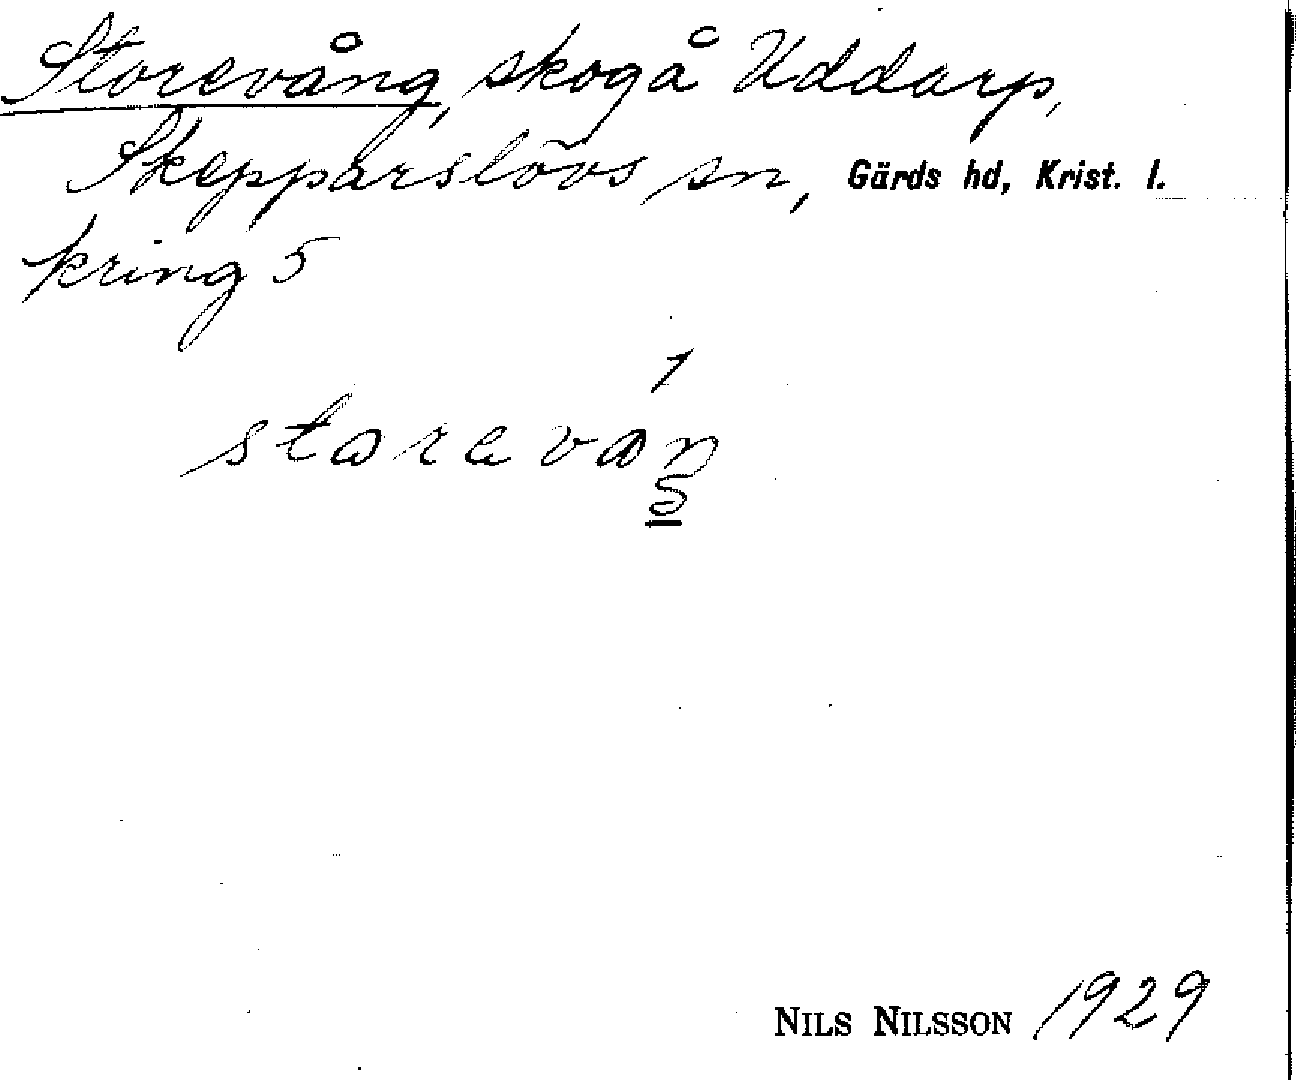 Storevång, skog å Uddarp,
Skepparslövs sn, Gärds hd, Krist. l.
kring 5
1
storevaŋ
5
NILS NILSSON 1929